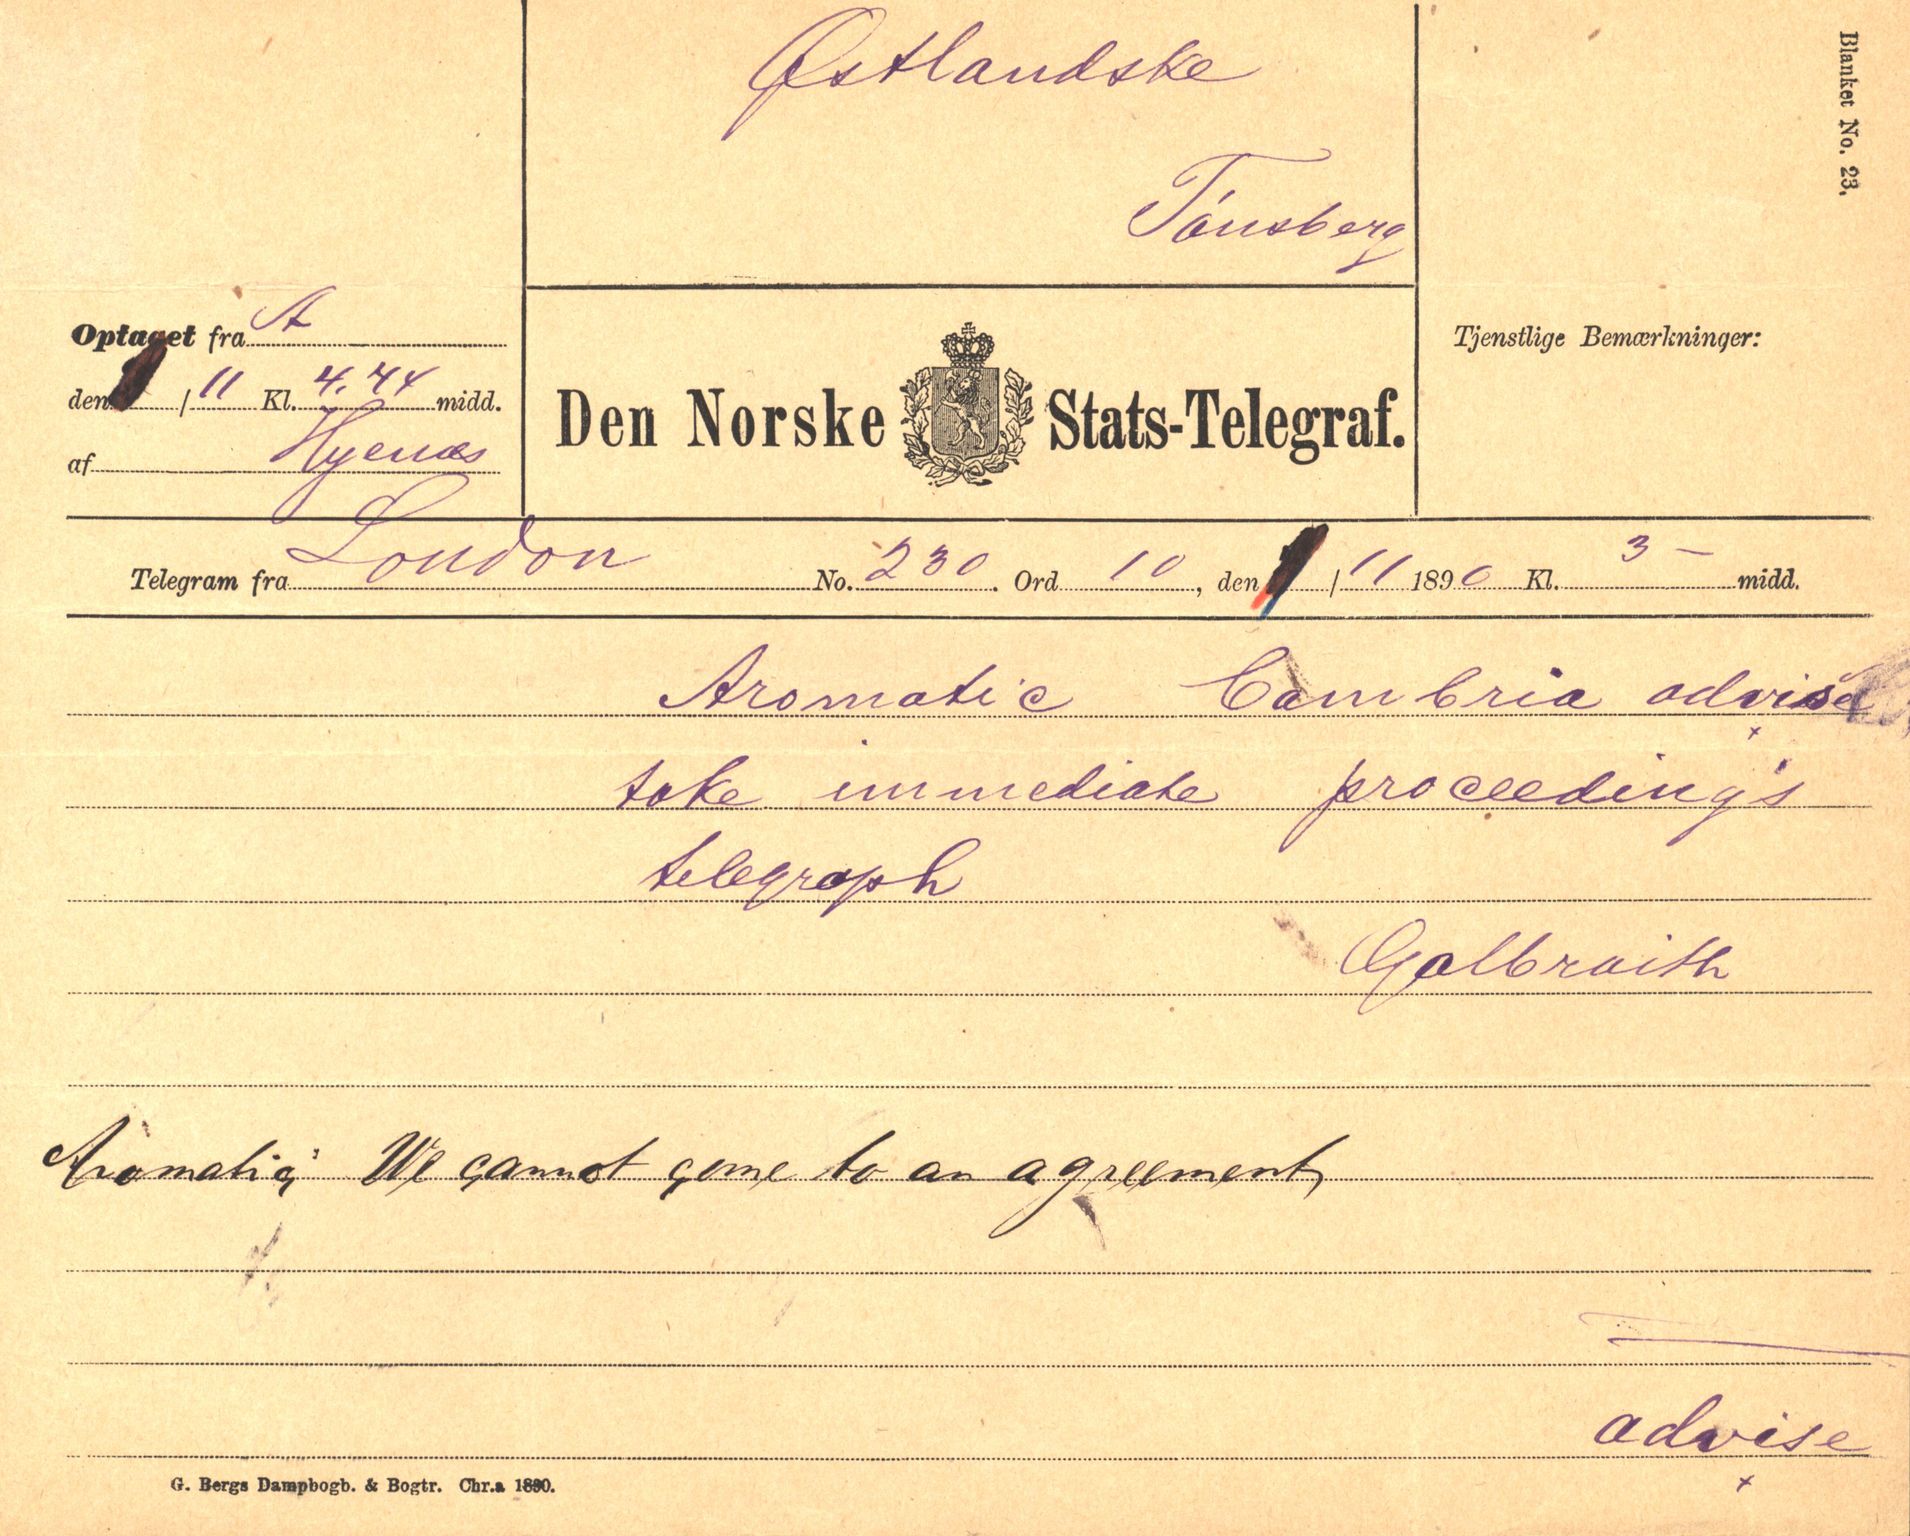 Østlandske
Tönsberg
Blanket No. 23.
Optaget fra A
den / 11 Kl. 4.44 midd.
af Hyenæs
Den Norske Stats-Telegraf.
Tjenstlige Bemærkninger:
Telegram fra London No. 230. Ord 10, den / 11 1890 Kl. 3 — midd.
Aromatic Cambria advise
take immediate proceedings
telegraph
Galbraith
Aromatic; We cannot come to an agreement,
advise
x
G. Bergs Dampbogb. & Bogtr. Chr.a 1890.